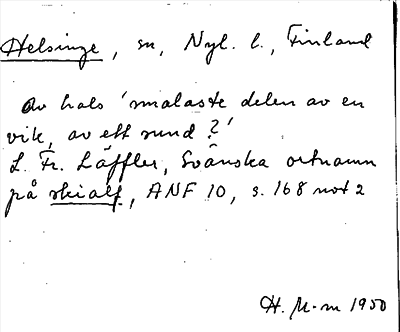 Helsinge, sn, Nyl. l., Finland
Av hals 'smalaste delen av en
vik, av ett sund?'
L. Fr. Läffler, Svänska ortnamn
på skialf, ANF 10, s. 168 not 2
H. M-m 1950